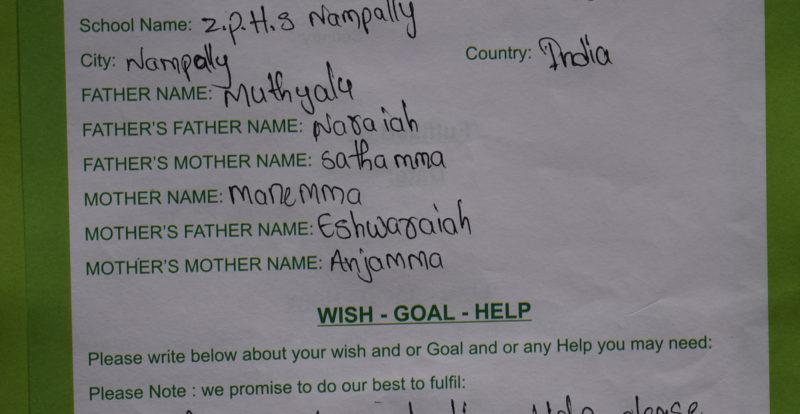 School Name: Z.P.H.S Nampally
City: Nampally Country: India
FATHER NAME: Muthyalu
FATHER'S FATHER NAME: Naraiah
FATHER'S MOTHER NAME: Sathamma
MOTHER NAME: Manemma
MOTHER'S FATHER NAME: Eshwaraiah
MOTHER'S MOTHER NAME: Anjamma
WISH - GOAL - HELP
Please write below about your wish and or Goal and or any Help you may need:
Please Note : we promise to do our best to fulfil:
Help please